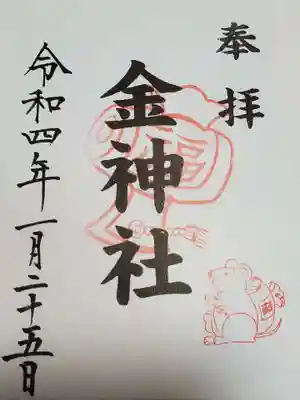 奉拝
金神社
令和四年一月二十五日
福